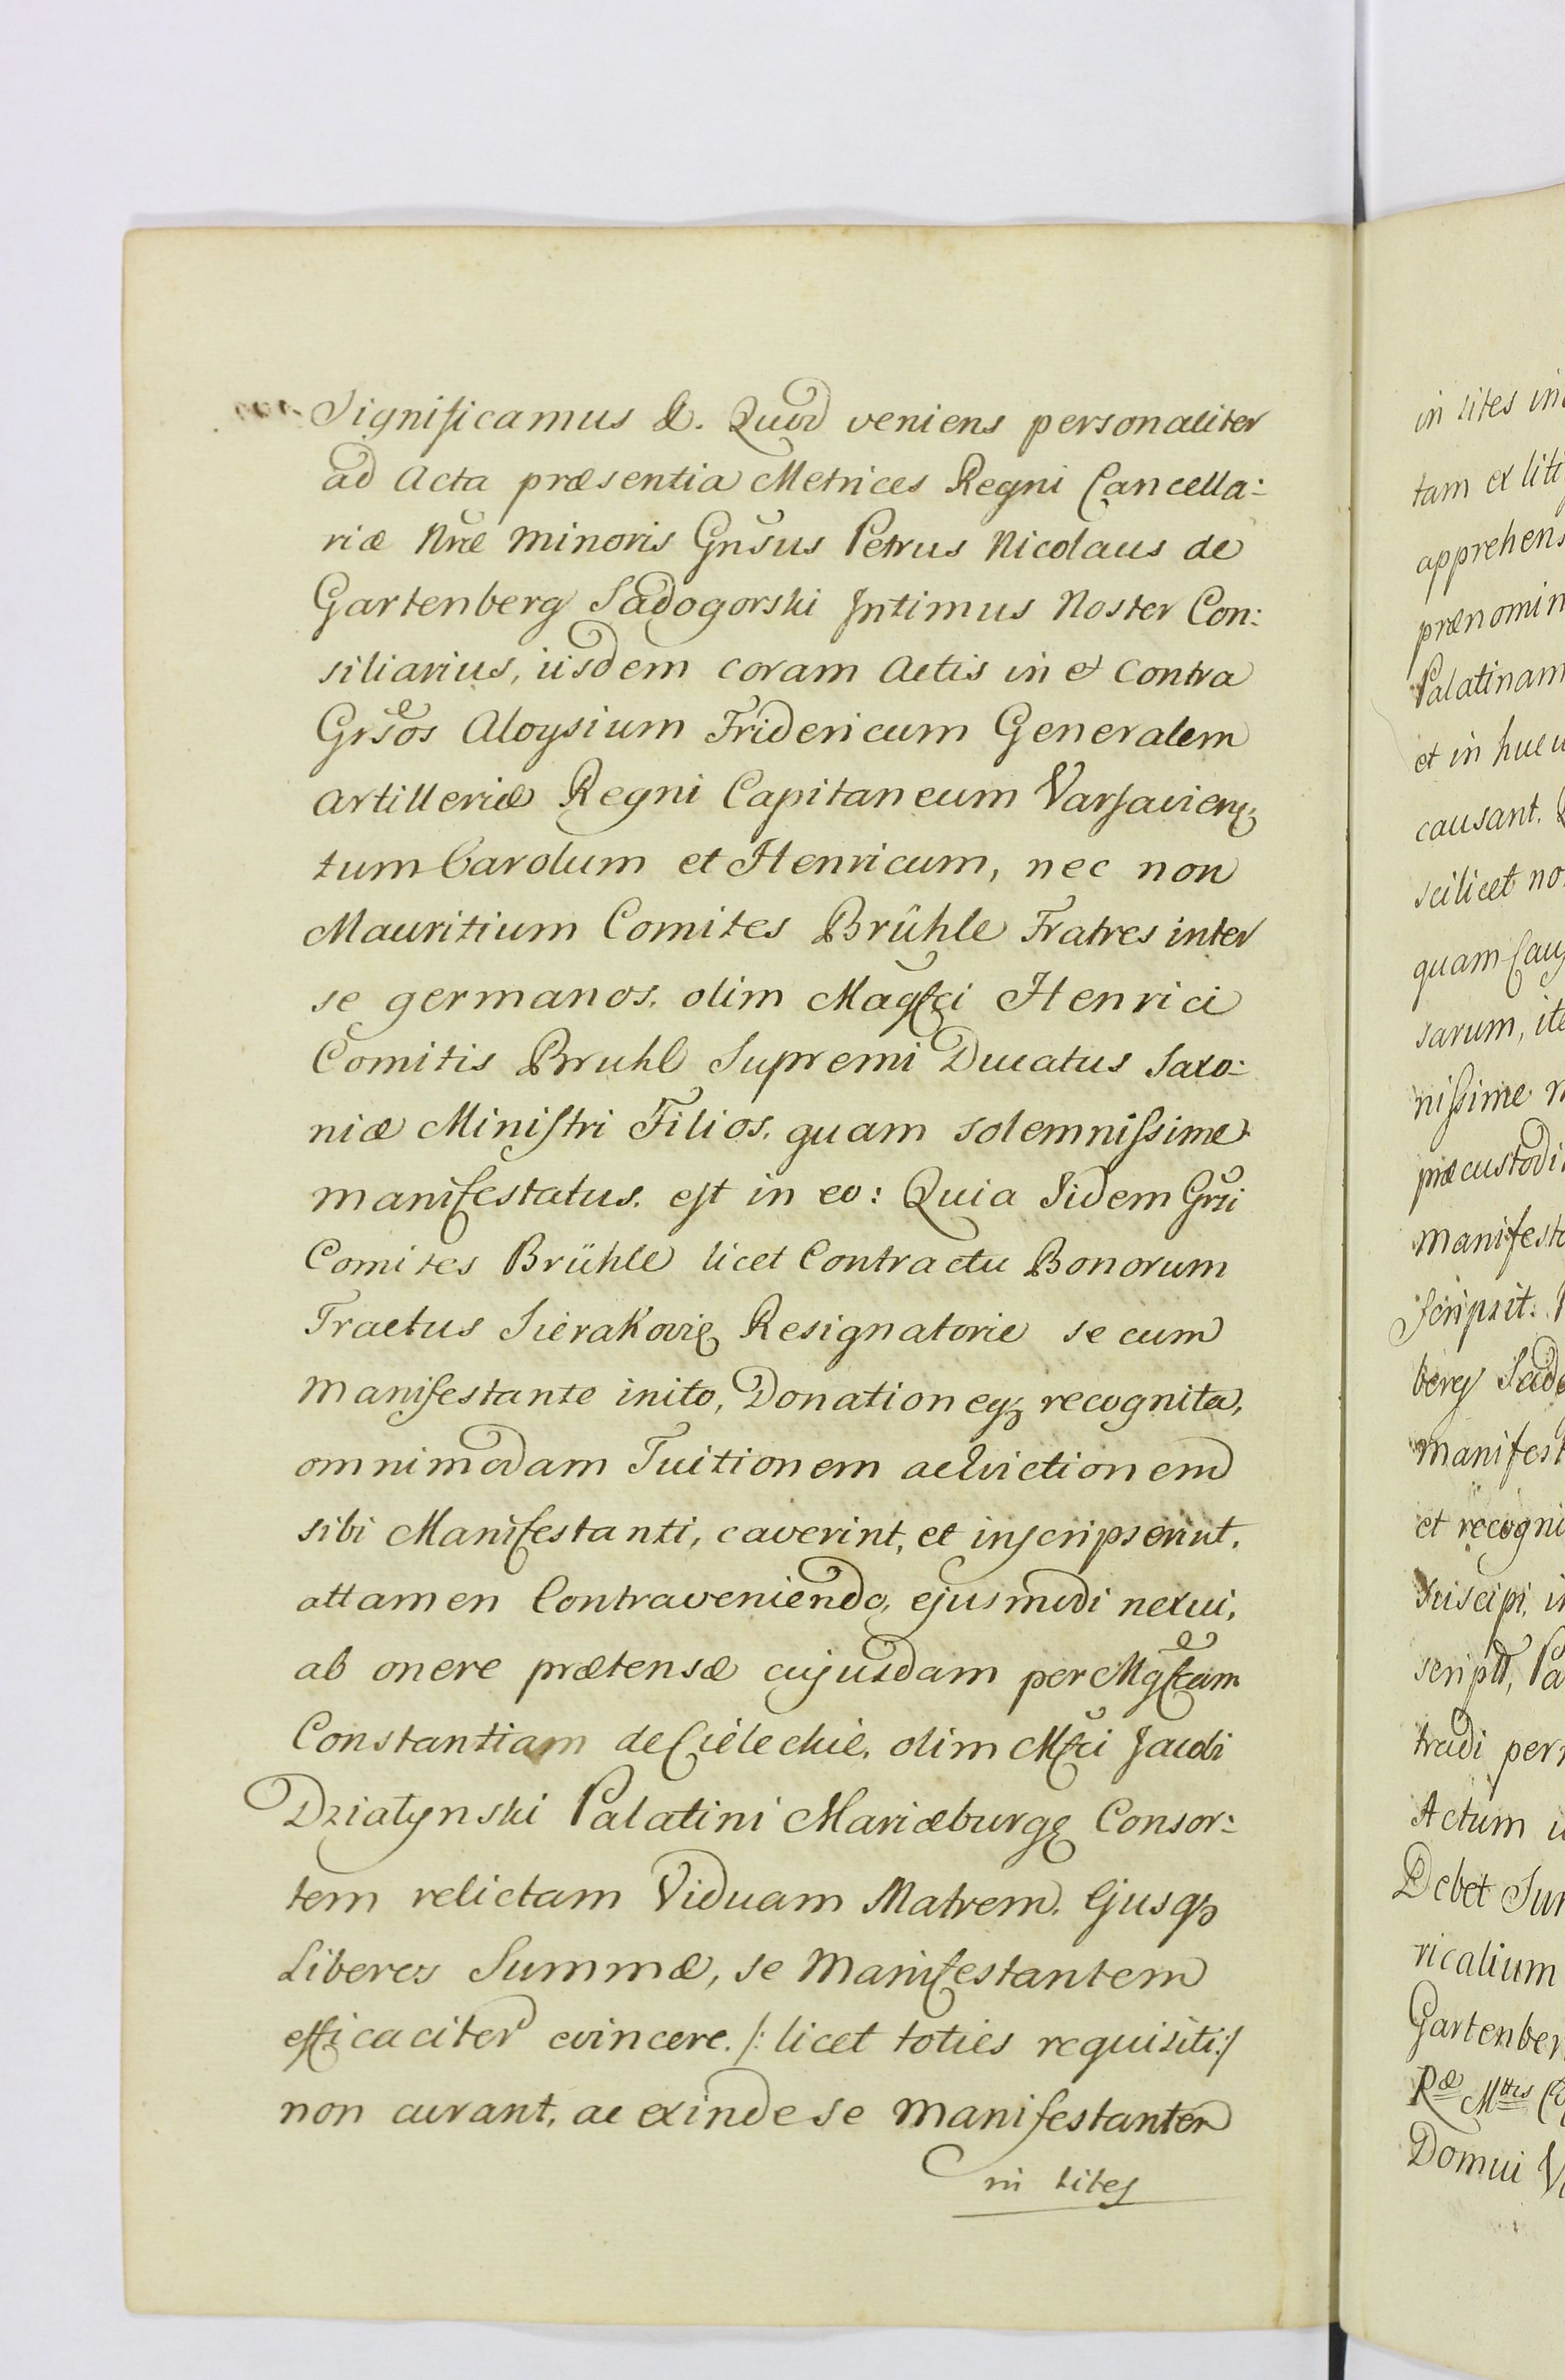 Significamus &. Quod veniens personaliter
ad Acta præsentia Metrices Regni Cancella:
riæ Nræ minoris Gnsus Petrus Nicolaus de
Gartenberg Sadogorski Intimus Noster Con:
siliarius, iisdem coram Actis in et contra
Grsos Aloysium Fridericum Generalem
Artilleriæ Regni Capitaneum Varsavien,
tum Carolum et Henricum, nec non
Mauritium Comites Brühle Fratres inter
se germanos, olim Magfci Henrici
Comitis Bruhl Supremi Ducatus Saxo:
niæ Ministri Filios, quam solemnissime
manifestatus, est in eo: Quia Iidem Grsi
Comites Brühle licet Contractu Bonorum
Tractus Sierakovię Resignatorie se cum
Manifestante inito, Donationeq; recognita,
omnimodam Tuitionem ac Evictionem
sibi Manifestanti, caverint, et inscripserint,
attamen Contraveniendo, ejusmodi nexui,
ab onere prætensæ cujusdam per Mgfcam
Constantiam de Cielechie, olim Mfci Jacobi
Dziatynski Palatini Mariæburgę Consor:
tem relictam Viduam Matrem, Ejusq;
Liberos Summæ, se Manifestantem
efficaciter evincere /: licet toties requisiti :/
non curant, ac exinde se Manifestantem
in lites
in lites
tam ex
apprehens
prænomin
Palatinam
et in
causant.
scilicet
quam
sarum,
nissime
præcustodi
manifest
scripsit.
berg
manifest
et
suscipi,
tradi
Actum
Debet
ricalium
Gartenber
Ræ Mttis
Domui